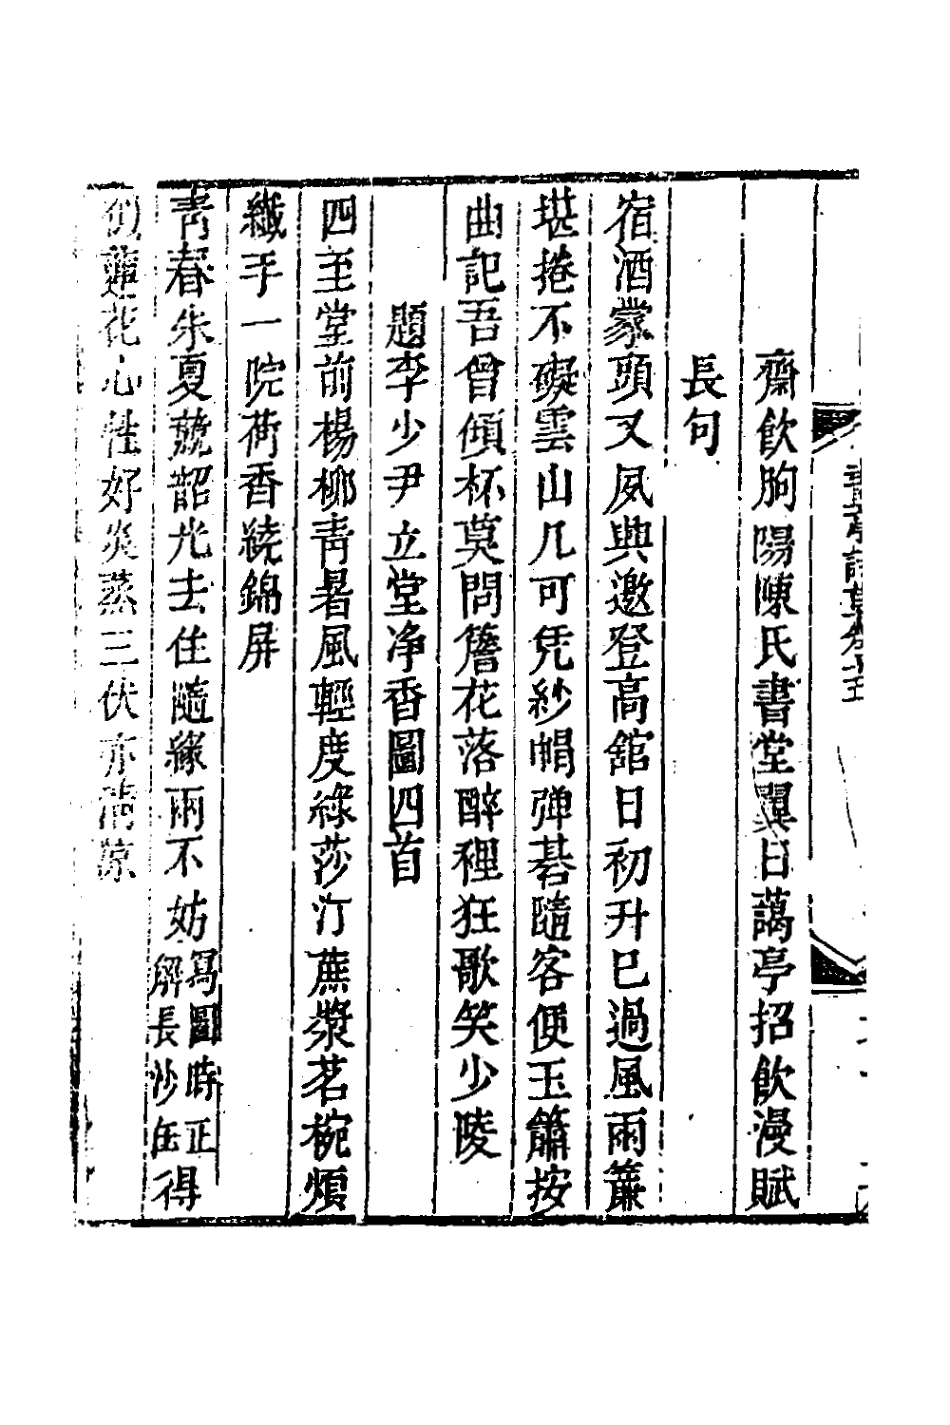 齋飲朐陽陳氏書堂翼日藹亭招飲漫賦
長句
宿酒蒙頭又夙興邀登高舘日初升巳過風雨簾
堪捲不礙雲山几可凭紗帽弹碁隨客便玉簫按
曲記吾曾傾杯莫問簷花落醉裡狂歌笑少陵
題李少尹立堂净香圖四首
四至堂前楊柳青暑風輕度綠莎汀蔗漿茗椀煩
纖手一院荷香繞錦屏
青春朱夏競韶光去住隨緣雨不妨寫圖時正解長沙缶得
蓮花心性好炎蒸三伏亦清凉